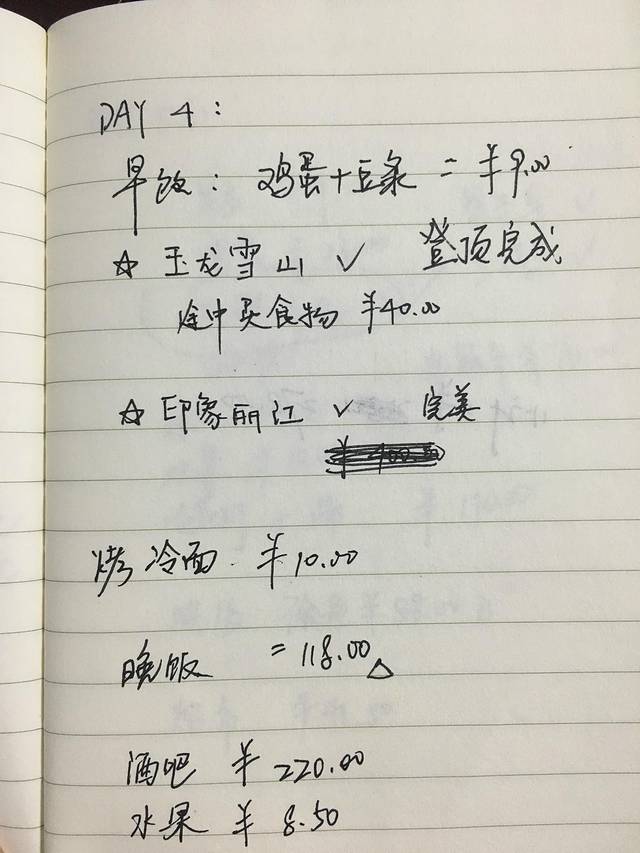 DAY 4:
早饭: 鸡蛋+豆浆 = ¥9.00
☆ 玉龙雪山 ✓ 登顶完成
途中买食物 ¥40.00
☆ 印象丽江 ✓ 完美
烤冷面 ¥10.00
晚饭 =118.00△
酒吧 ¥220.00
水果 ¥8.50